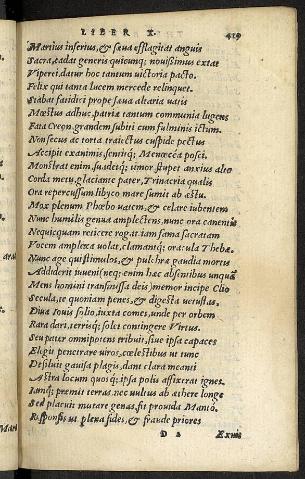 LIBER X. 419
Martius inferius, & sæua efflagitat anguis
Sacra, cadat generis quicunq; nouissimus extat
Viperei, datur hoc tantum uictoria pacto.
Felix qui tanta lucem mercede relinquet.
Stabat fatidici prope sæua altaria uatis
Mœstus adhuc, patriæ tantum communia lugens
Fata Creon, grandem subiti cum fulminis ictum,
Nonsecus ac torta traiectus cuspide pectus
Accipit exanimis, sentitq; Menœcea posci.
Monstrat enim, suadetq; timor, stupet anxius alto
Corda metu, glaciante pater, Trinacria qualis
Ora repercussum libyco mare sumit ab æstu.
Mox plenum Phœbo uatem, & celare iubentem
Nunc humilis genua amplectens, nunc ora canentis
Nequicquam reticere rogat, iam fama sacratam
Vocem amplexa uolat, clamantq; oracula Thebæ.
Nunc age quis stimulos, & pulchræ gaudia mortis
Addiderit iuueni (neq; enim hæc absentibus unquã
Mens homini transmissa deis) memor incipe Clio
Secula, te quoniam penes, & digesta uetustas,
Diua Iouis solio, iuxta comes, unde per orbem
Rara dari, terrisq; solet contingere Virtus.
Seu pater omnipotens tribuit, siue ipsa capaces
Elegit penetrare uiros, cœlestibus ut tunc
Desiluit gauisa plagis, dant clara meanti
Astra locum quosq; ipsa polis affixerat ignes.
Iamq; premit terras, nec uultus ab æthere longe
Sed placuit mutare genas, fit prouida Manto.
Responsis ut plena fides, & fraude priores
D 2 Exuit